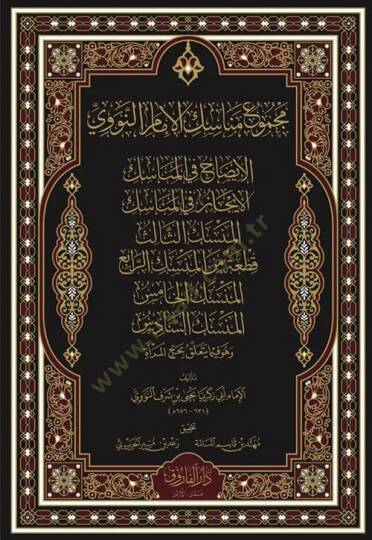 مجموع مناسك الإمام النووي
الإيضاح في المناسك
الإيجاز في المناسك
المنسك الثالث
قطعة من المنسك الرابع
المنسك الخامس
المنسك السادس
وهو فيما يتعلق بحج المرأة
تأليف
الإمام أبي زكريا يحيى بن شرف النووي
(٦٣١ - ٦٧٦ هـ)
تحقيق
بن قاسم
دار الفاروق
عمان - الأردن